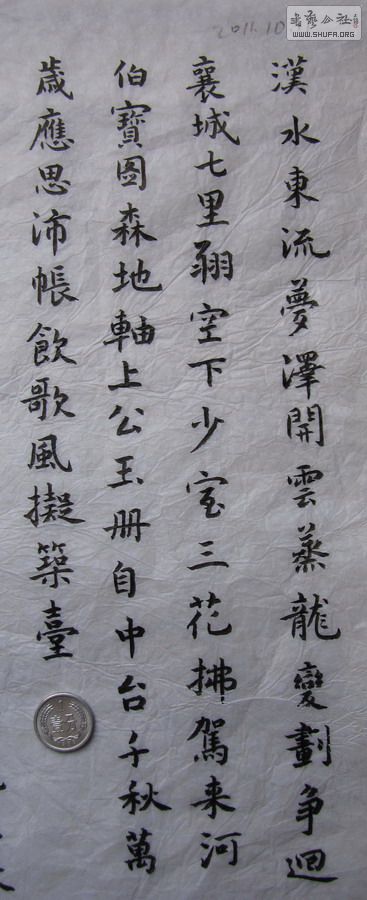 2011.10
書藝公社
WWW.SHUFA.ORG
漢水東流夢澤開雲蒸龍變劃争迴
襄城七里空下少室三花拂駕来河
伯寶图森地軸上公玉册自中台千秋萬
歲應思沛帳飲歌風擬築臺